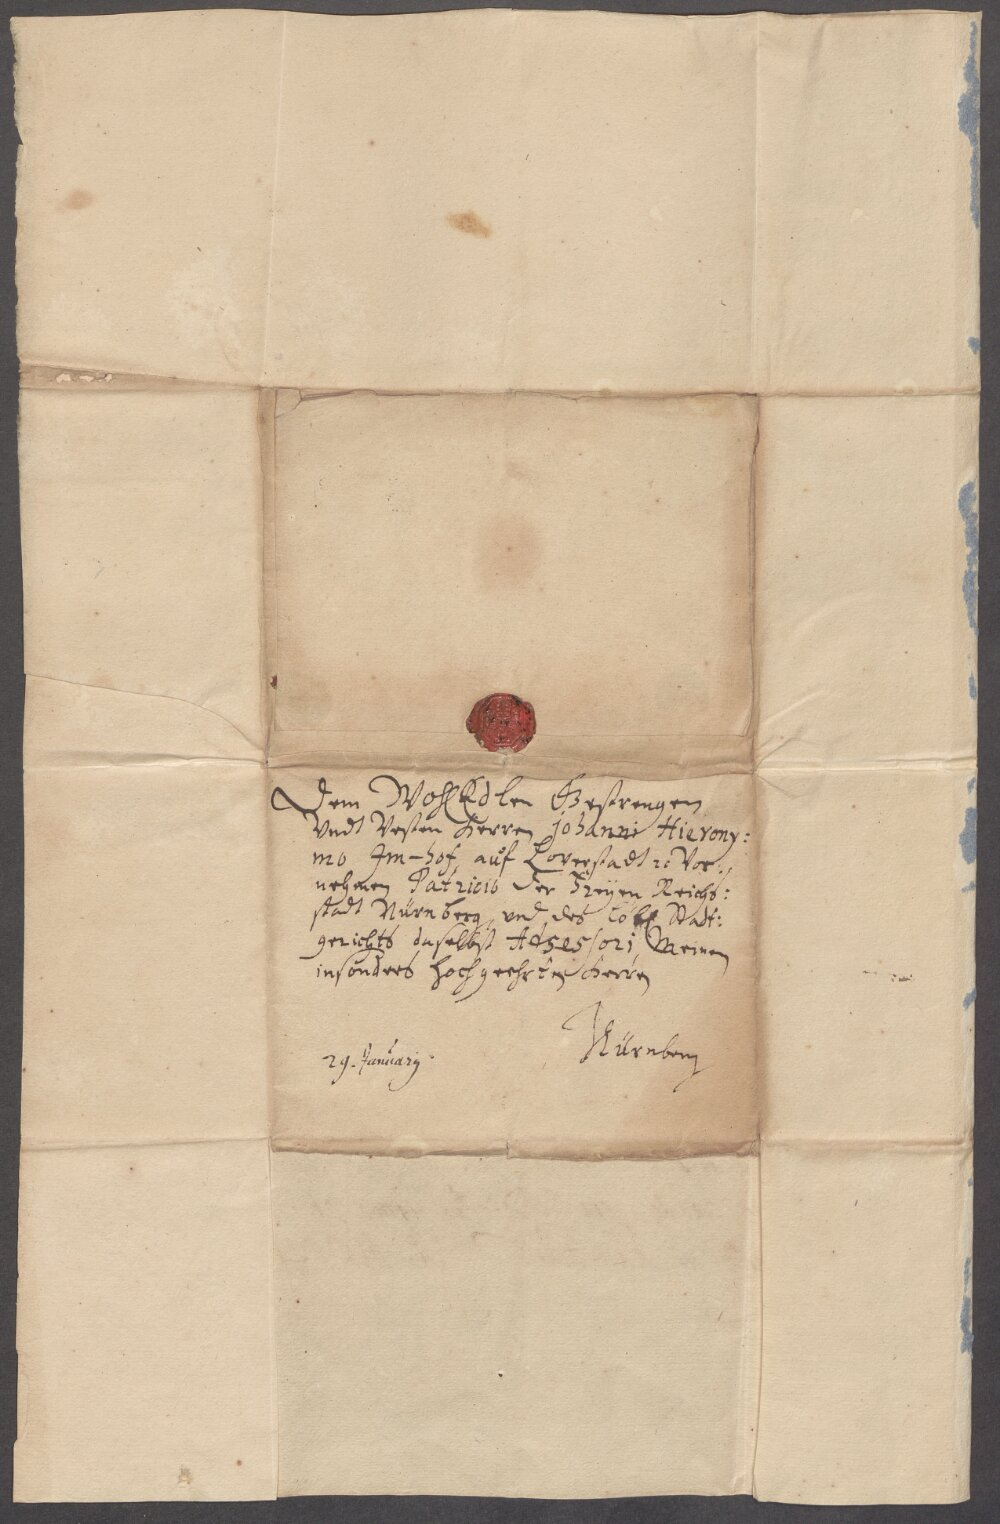 Dem Wohl Edlen Gestrengen
Undt Vesten Herren Johanni Hierony:
mo Im-hof, auf Loverstadt ꝛc Vor:
nehmen Patricio der Freyen Reichs:
stadt Nürnberg, und des löbl Stadt:
gerichts daselbst Assessori Meinen
insonders hochgeehrten Herren
Nürnberg
29. January